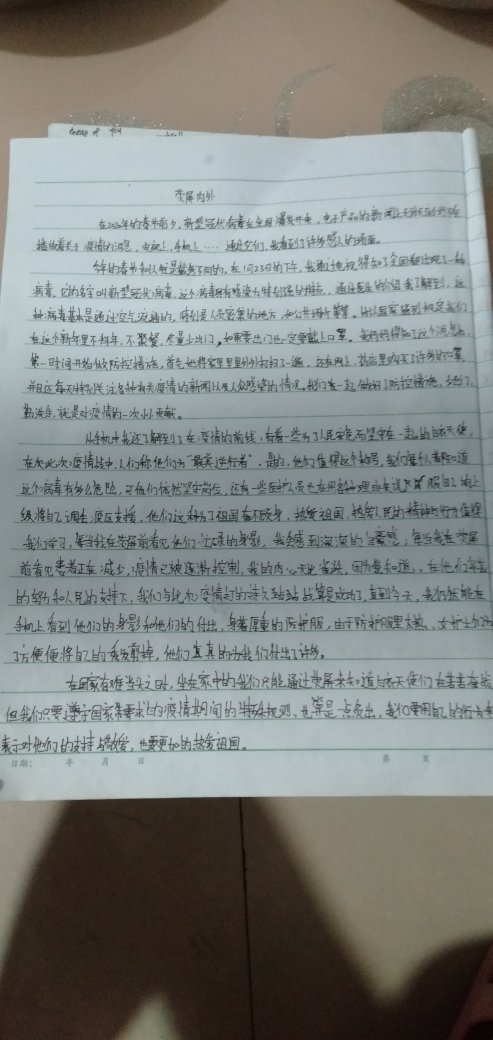 cheap of
荧屏内外
在2020年的春节前夕,新型冠状病毒在全国爆发开来,电子产品的新闻上
播放着关于疫情的消息,电视上,手机上……通过它们,我看到了许多感人的画面。
今年的春节和以往是截然不同的,在1月23日的下午,我通过电视得知了全国都出现了一种
病毒,它的名字叫新型冠状病毒,这个病毒拥有感染力特别强的特点,通过医生的介绍我了解到,这
种病毒基本是通过空气流通的,特别是人员密集的地方,如公共场所等等。所以国家强烈规定我们
在这个新年里不拜年,不聚餐,尽量少出门,如果要出门也一定要戴上口罩,我妈妈得知了这个消息后,
第一时间开始做防控措施,首先她将家里里里外外扫了一遍,还在网上、药店里购买了许多的口罩,
并且还每天特别关注各种有关疫情的新闻以及人众感染的情况,我们家一起做好了防控措施,
勤洗手,就是对疫情的一次小小贡献。
从手机中我还了解到了在疫情的前线,有着一些为了人民安危而坚守在一起的白衣天使,
在次此次疫情战中,人们称他们为“最美逆行者”,是的,他们值得这个称号,我们每个人都知道
这个病毒有多么危险,可他们依然坚守岗位,还有一些医护人员也在用各种理由来说服自己的上
级将自己调去疫区支援,他们这种为了祖国奋不顾身,热爱祖国,热爱人民的精神与行为值得
我们学习,每当我在荧屏前看见他们忙碌的身影,我会感到深深的自豪感,每当我在荧屏
前看见患者正在减少,疫情已被逐渐控制,我的内心无比雀跃,因为我知道,在他们辛苦
的努力和人民的支持下,我们与此次疫情打的持久战算是成功了,直到今天,我仍然能在
手机上看到他们的身影和他们的付出,身着厚重的防护服,由于防护服里太热,女护士们为
了方便便将自己的秀发剪掉,他们真真的为我们付出了许多。
在国家有难当头之时,坐在家中的我们只能通过荧屏来知道白衣天使们在苦苦奋战
但我们只要遵守国家需要求的疫情期间的特殊规则,也算是一点贡出,我们要用自己的行为去
表示对他们的支持与敬爱,也要更加的热爱祖国。
日期: 年 月 日 第 页